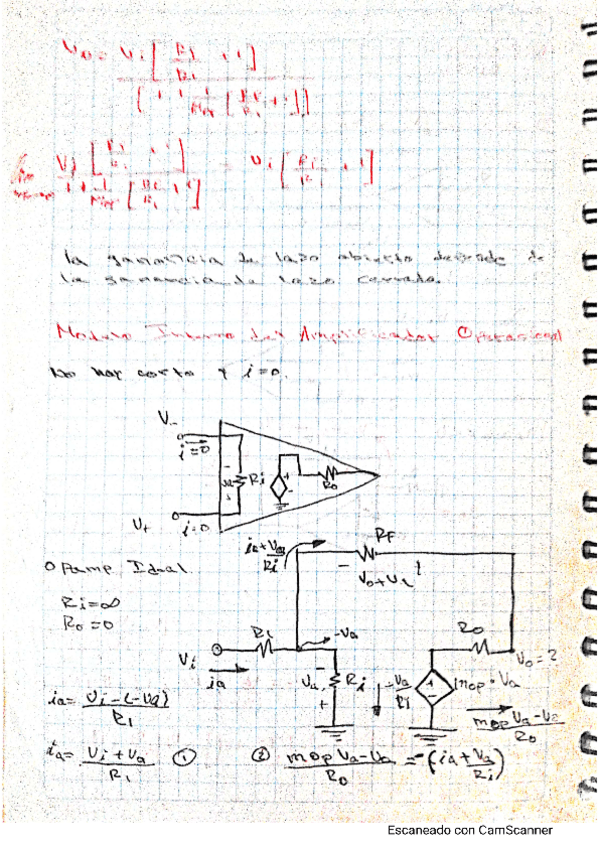 Vo = Vi [ Rf/R1 + 1 ]
( 1 + 1/Mop [ Rf/R1 + 1 ] )
Vi [ Rf/R1 + 1 ] / 1 + 1/Mop [ Rf/R1 + 1 ] = Vi [ Rf/R1 + 1 ]
la ganancia de lazo abierto depende de
la ganancia de lazo cerrado.
Modelo Interno del Amplificador Operacional
No hay corto y i=0.
V-
i=0
Ri
Ro
V+
i=0
ia + Va/Ri
RF
Vo+Va
Opamp Ideal
Ri=∞
Ro=0
R1
-Va
Ro
Vi
ia
Va
Ri
-Va/Ri
mop·Va
Vo=?
mop Va-Vo/Ro
ia = Vi-(-Va)/R1
ia = Vi+Va/R1 ①
② mop Va-Vo/Ro = -(ia+Va/Ri)
Escaneado con CamScanner